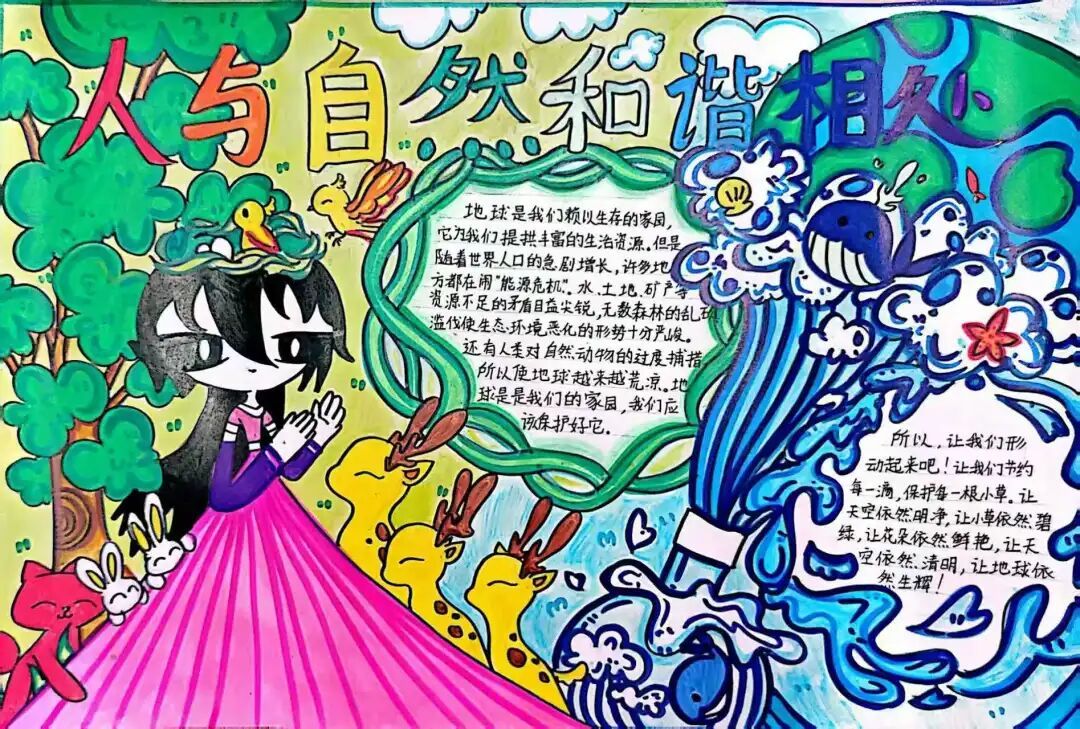 人与自然和谐相处
地球是我们赖以生存的家园,
它为我们提拱丰富的生活资源.但是
随着世界人口的急剧增长,许多地
方都在闹"能源危机".水.土地.矿产等
资源不足的矛盾日益尖锐,无数森林的乱砍
滥伐使生态环境恶化的形势十分严峻。
还有人类对自然动物的过度捕猎
所以使地球越来越荒凉.地
球是是我们的家园,我们应
该保护好它.
所以,让我们形
动起来吧!让我们节约
每一滴,保护每一根小草.让
天空依然明净,让小草依然碧
绿,让花朵依然鲜艳,让天
空依然.清明,让地球依
然生辉!